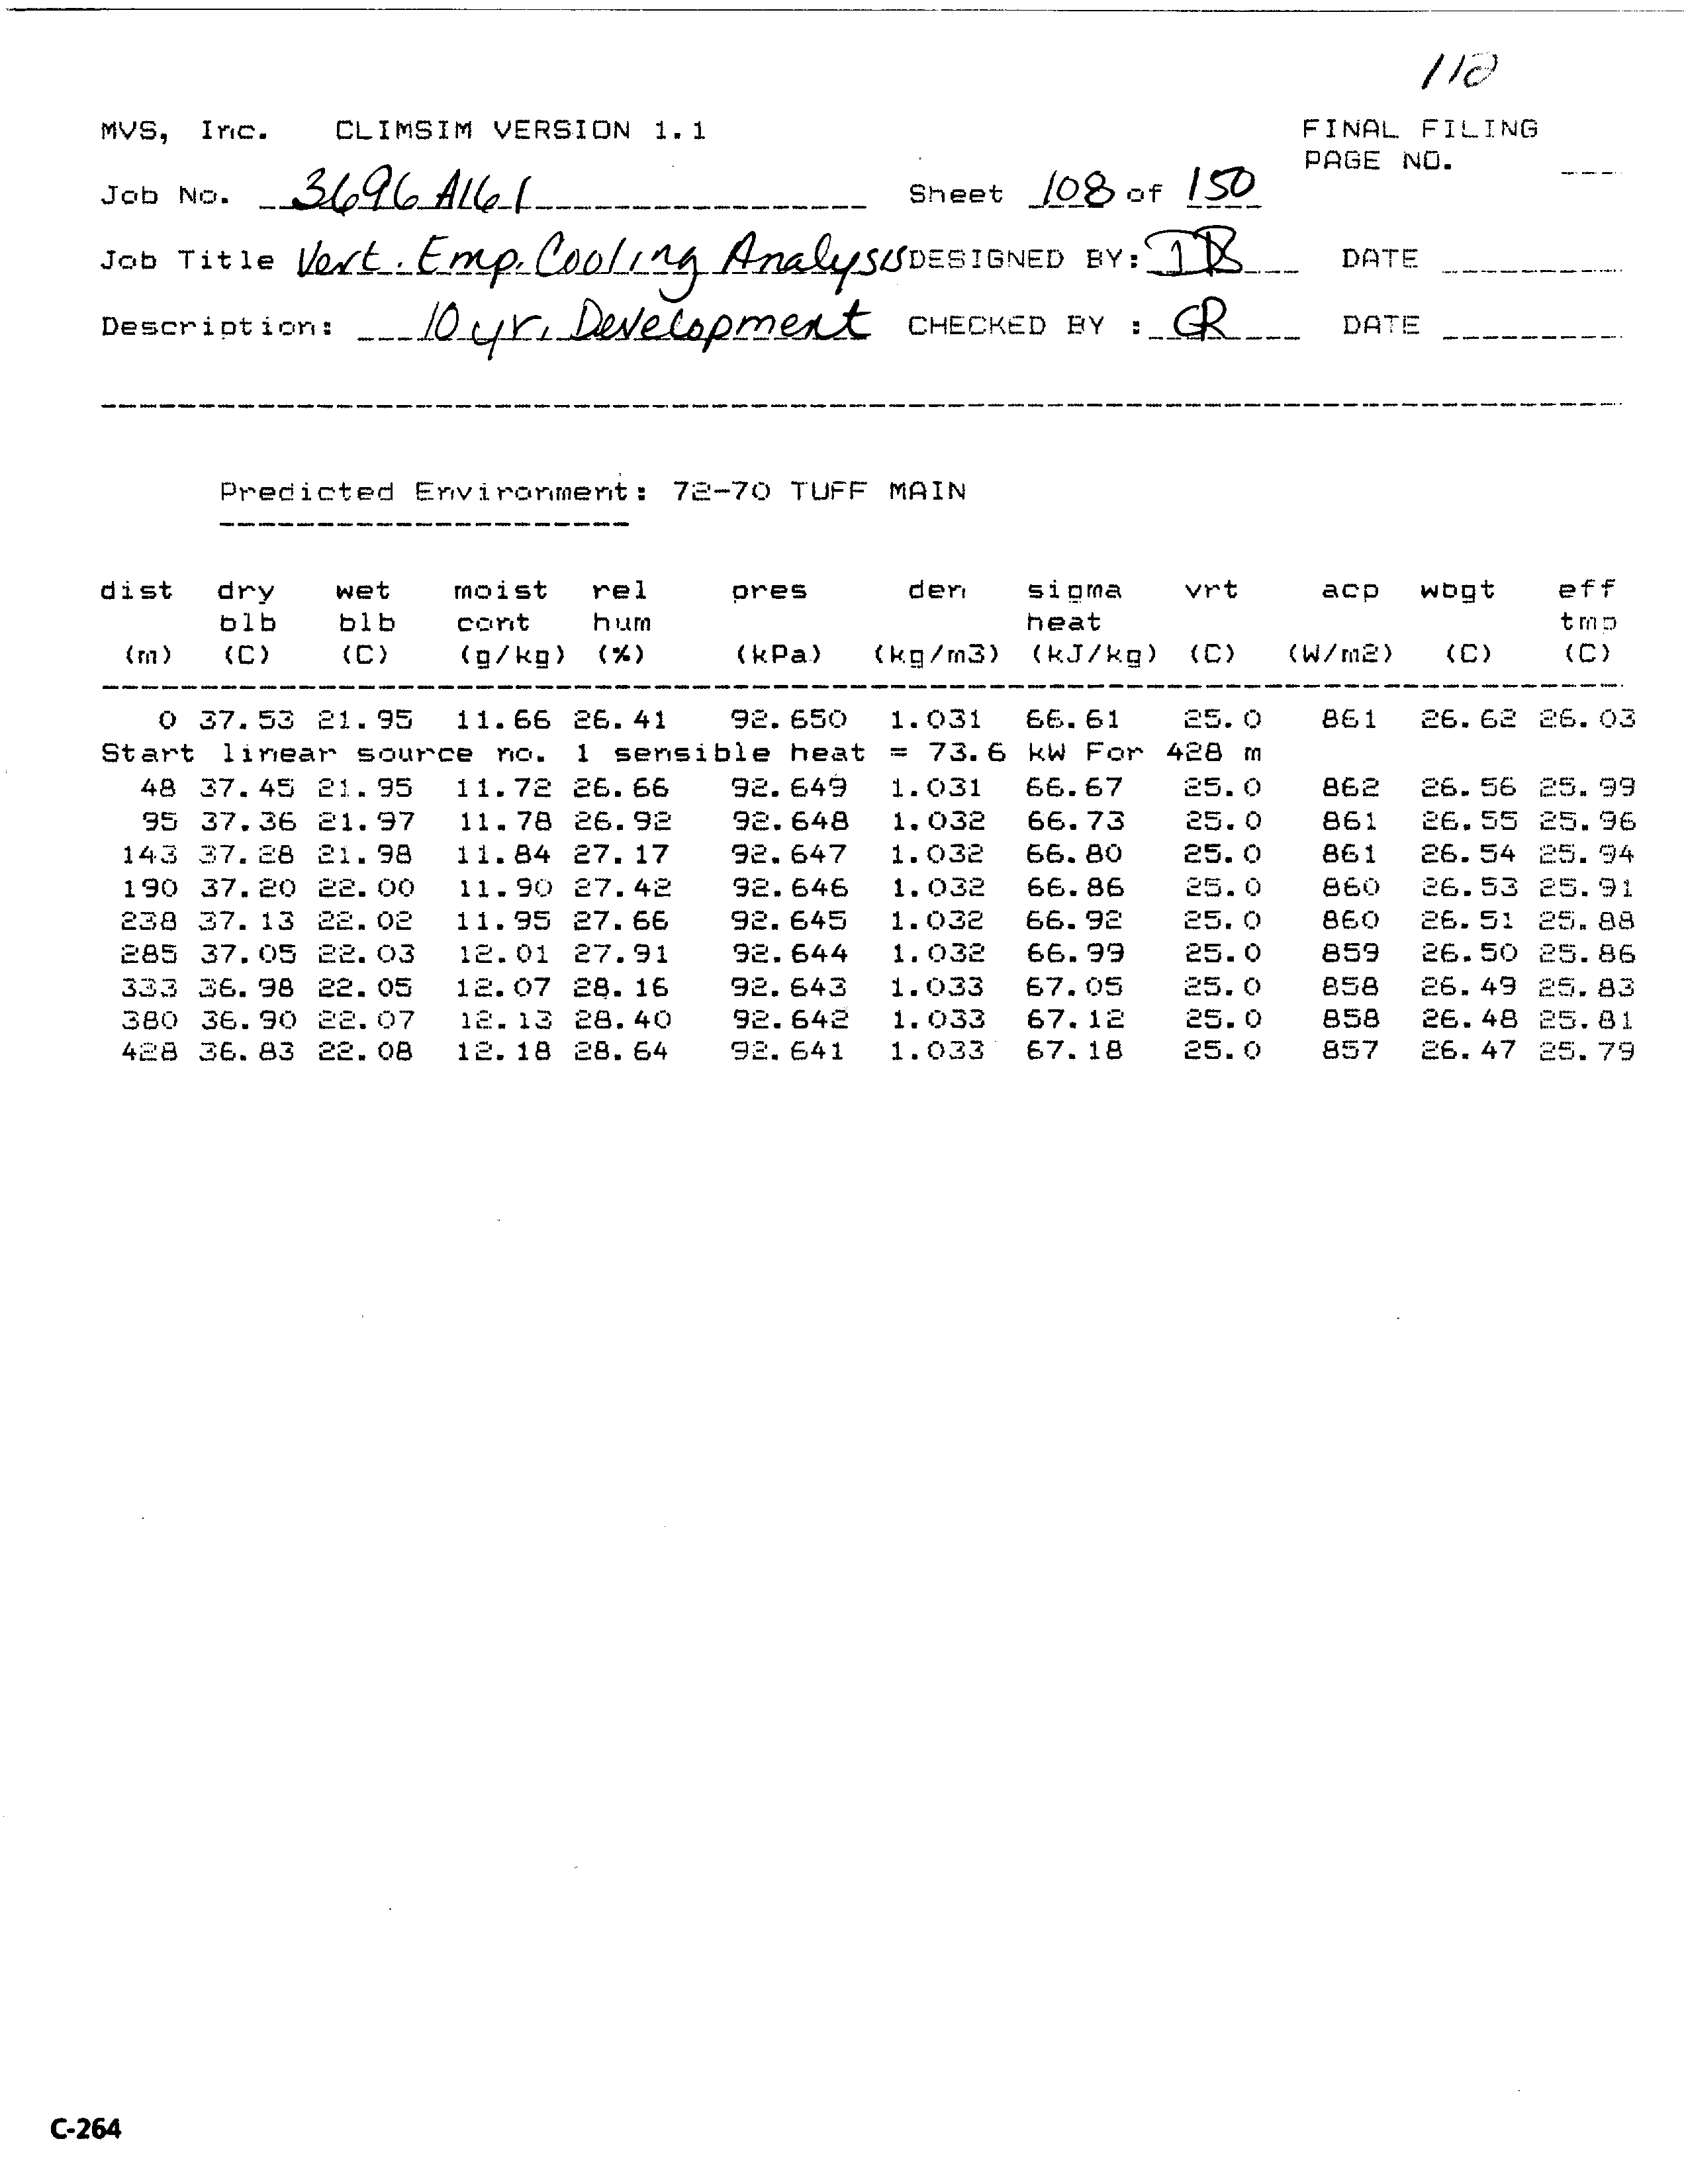 112
MVS, Inc. CLIMSIM VERSION 1.1 FINAL FILING
PAGE NO. ___
Job No. 3696 A161 Sheet 108 of 150
Job Title Vert. Emp. Cooling Analysis DESIGNED BY: DATE
Description: 10 yr. Development CHECKED BY : GR DATE
Predicted Environment: 72-70 TUFF MAIN
dist dry wet moist rel pres den sigma vrt acp wbgt eff
blb blb cont hum heat tmp
(m) (C) (C) (g/kg) (%) (kPa) (kg/m3) (kJ/kg) (C) (W/m2) (C) (C)
0 37.53 21.95 11.66 26.41 92.650 1.031 66.61 25.0 861 26.62 26.03
Start linear source no. 1 sensible heat = 73.6 kW For 428 m
48 37.45 21.95 11.72 26.66 92.649 1.031 66.67 25.0 862 26.56 25.99
95 37.36 21.97 11.78 26.92 92.648 1.032 66.73 25.0 861 26.55 25.96
143 37.28 21.98 11.84 27.17 92.647 1.032 66.80 25.0 861 26.54 25.94
190 37.20 22.00 11.90 27.42 92.646 1.032 66.86 25.0 860 26.53 25.91
238 37.13 22.02 11.95 27.66 92.645 1.032 66.92 25.0 860 26.51 25.88
285 37.05 22.03 12.01 27.91 92.644 1.032 66.99 25.0 859 26.50 25.86
333 36.98 22.05 12.07 28.16 92.643 1.033 67.05 25.0 858 26.49 25.83
380 36.90 22.07 12.13 28.40 92.642 1.033 67.12 25.0 858 26.48 25.81
428 36.83 22.08 12.18 28.64 92.641 1.033 67.18 25.0 857 26.47 25.79
C-264